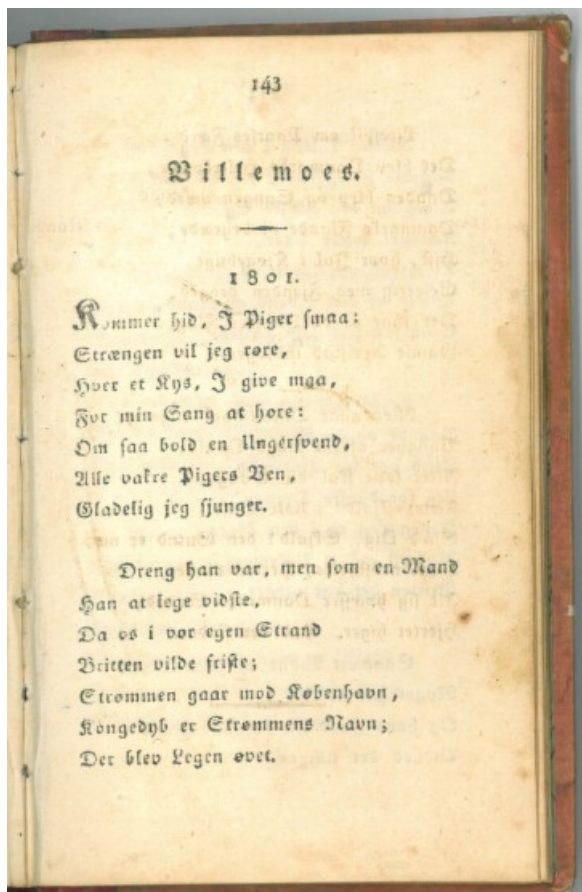 143
Villemoes.
1801.
Kommer hid, I Piger smaa:
Strængen vil jeg røre,
Hver et Kys, I give maa,
For min Sang at høre:
Om saa bold en Ungersvend,
Alle vakre Pigers Ven,
Gladelig jeg sjunger.
Dreng han var, men som en Mand
Han at lege vidste,
Da os i vor egen Strand
Britten vilde friste;
Strømmen gaar mod København,
Kongedyb er Strømmens Navn;
Der blev Legen øvet.